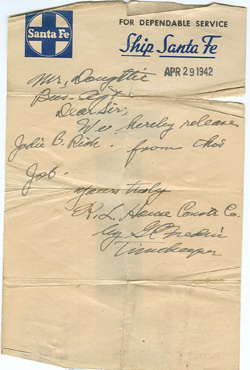 Santa Fe
FOR DEPENDABLE SERVICE
Ship Santa Fe
APR 29 1942
Mr.
Bus. Agt.
Dear Sir;
We hereby release
Jodie B. from this
Job.
Yours truly
R. L. House Constr Co.
By
Timekeeper